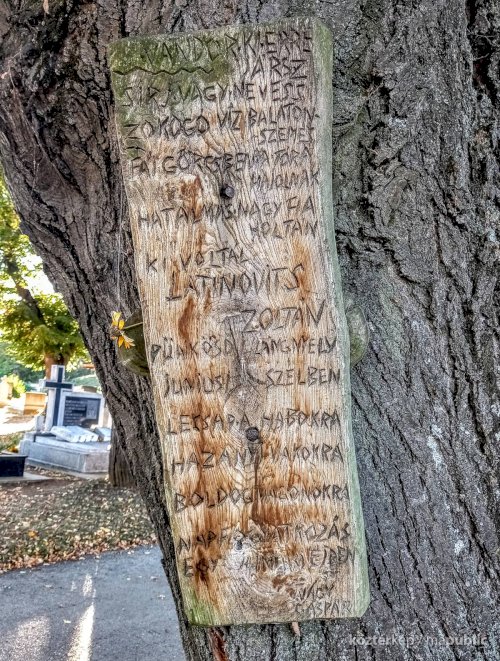 VÁNDOR KI ERRE
JÁRSZ
SÍRJ VAGY NEVESS
ZOKOGÓ VÍZ BALATON-
SZEMES
FÁI GÖRCSBEN
HAJOLNAK
HATALMAS NAGY FA
HOLTAN
KI VOLTÁL
LATINOVITS
ZOLTÁN
PÜNKÖSDI LÁNGNYELV
JÚNIUSI SZÉLBEN
LECSAP A HABOKRA
HAZÁNY VAKOKRA
BOLDOGTALANOKRA
NAPFOGYATKOZÁS
EGY
NAGY
GÁSPÁR
közterkep / mapublic